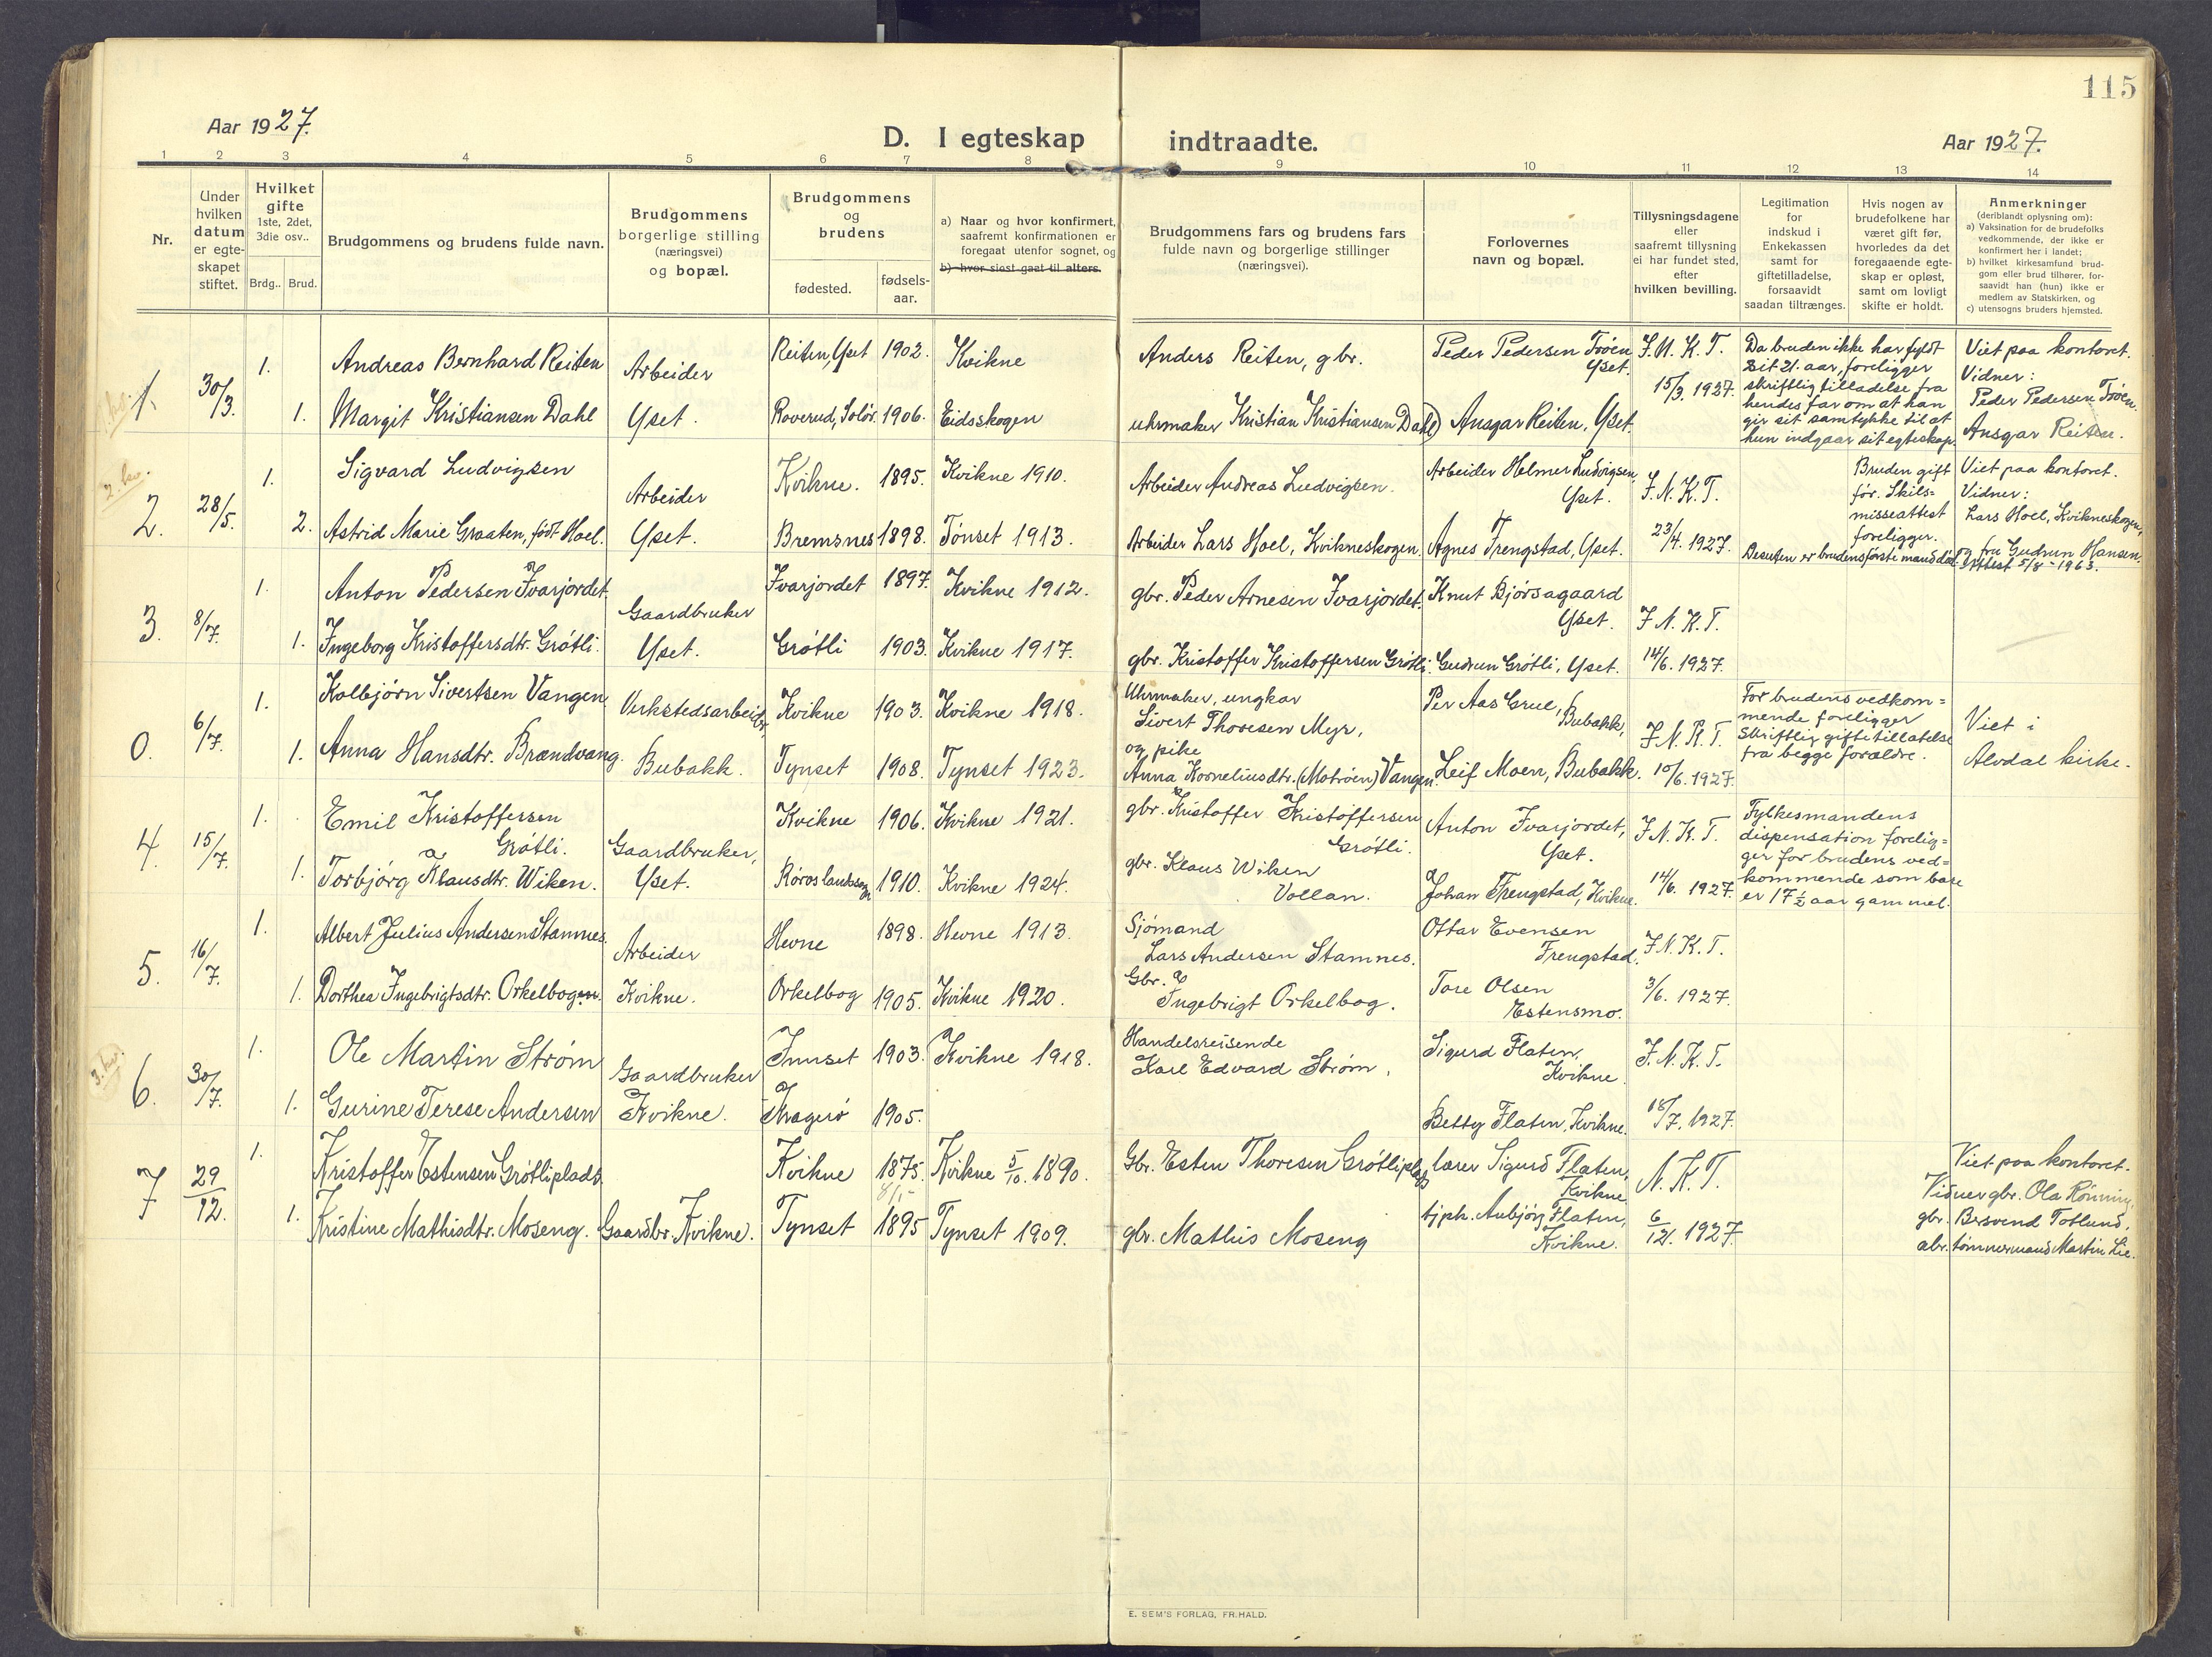 115
Aar 1927.
D. I egteskap indtraadte.
Aar 1927.
1 2 3 4 5 6 7 8 9 10 11 12 13 14
Nr.
Under hvilken datum er egte-skapet stiftet.
Hvilket gifte
1ste, 2det, 3die osv..
Brdg.. Brud.
Brudgommens og brudens fulde navn.
Brudgommens borgerlige stilling (næringsvei) og bopæl.
Brudgommens og brudens
fødested.
fødsels-aar.
a) Naar og hvor konfirmert, saafremt konfirmationen er foregaat utenfor sognet, og
b) hvor sidst gaat til alters.
Brudgommens fars og brudens fars fulde navn og borgerlige stillinger (næringsvei).
Forlovernes navn og bopæl.
Tillysningsdagene eller saafremt tillysning ei har fundet sted, efter hvilken bevilling.
Legitimation for indskud i Enkekassen samt for giftetilladelse, forsaavidt saadan tiltrænges.
Hvis nogen av brudefolkene har været gift før, hvorledes da det foregaaende egte-skap er opløst, samt om lovligt skifte er holdt.
Anmerkninger
(deriblandt oplysning om):
a) Vaksination for de brudefolks vedkommende, der ikke er konfirmert her i landet;
b) hvilket kirkesamfund brud-gom eller brud tilhører, for-saavidt han (hun) ikke er medlem av Statskirken, og
c) utensogns bruders hjemsted.
1. 30/3.
1. Andreas Bernhard Reiten
Arbeider
Reiten, Yset 1902. Kvikne
Anders Reiten, gbr.
Peder Pedersen Trøen Yset.
F. N. K. T.
1. Margit Kristiansen Dahl
Yset.
Roverud, Solør. 1906. Eidsskogen
uhrmaker Kristian Kristiansen Dahl)
Ansgar Reiten, Yset.
15/3. 1927.
Da bruden ikke har fyldt
sit 21. aar, foreligger
skriftlig tilladelse fra
hendes far om at han
gir sit samtykke til at
hun indgaar sit egteskap.
Viet paa kontoret.
Vidner:
Peder Pedersen Trøen.
Ansgar Reiten.
2. kv.
2. 28/5.
1. Sigvard Ludvigsen
Arbeider
Kvikne. 1895. Kvikne 1910.
Arbeider Andreas Ludvigsen.
Arbeider Helmer Ludvigsen, Yset.
F. N. K. T.
2. Astrid Marie Graaten, født Hoel.
Yset.
Bremsnes 1898. Tønset 1913.
Arbeider Lars Hoel, Kvikneskogen.
Agnes Frengstad, Yset.
23/4. 1927.
Bruden gift
før. Skils=
misseattest
foreligger.
Desuten er brudens første mand død.
Viet paa kontoret.
Vidner:
Lars Hoel, Kvikneskogen,
og fru Gudrun Hansen.
Attest 5/8 - 1963.
3. 8/7.
1. Anton Pedersen Ivarjordet
Gaardbruker
Ivarjordet 1897. Kvikne 1912.
gbr. Peder Arnesen Ivarjordet.
Knut Bjørsagaard Yset.
F. N. K. T.
1. Ingeborg Kristoffersdtr. Grøtli.
Yset.
Grøtli 1903. Kvikne 1917.
gbr. Kristoffer Kristoffersen Grøtli.
Gudrun Grøtli, Yset.
14/6. 1927.
0. 6/7.
1. Kolbjørn Sivertsen Vangen
Verkstedsarbeider,
Kvikne 1903. Kvikne 1918.
Uhrmaker, ungkar
Sivert Thoresen Myr,
Per Aas Grue, Bubakk,
F. N. K. T.
1. Anna Hansdtr. Brændvang.
Bubakk.
Tynset 1908. Tynset 1923.
og pike
Anna Korneliusdtr. (Motrøen) Vangen.
Leif Moen, Bubakk.
10/6. 1927.
For brudens vedkom=
mende foreligger
skriftlig giftetillatelse
fra begge forældre.
Viet i
Alvdal kirke.
4. 15/7.
1. Emil Kristoffersen
Grøtli.
Gaardbruker,
Kvikne 1906. Kvikne 1921.
gbr. Kristoffer Kristoffersen
Grøtli.
Anton Ivarjordet, Yset.
F. N. K. T.
1. Torbjørg Klausdtr. Wiken.
Yset.
Røros landssogn 1910. Kvikne 1924.
gbr. Klaus Wiken
Vollan.
Johan Frengstad, Kvikne.
14/6. 1927.
Fylkesmandens
dispensation forelig=
ger for brudens ved=
kommende som bare
er 17 1/2 aar gammel.
5. 16/7.
1. Albert Julius Andersen Stamnes.
Arbeider
Hevne 1898. Hevne 1913.
Sjømand
Lars Andersen Stamnes.
Ottar Evensen
Frengstad.
F. N. K. T.
1. Dorthea Ingebrigtsdtr. Orkelbogen.
Kvikne.
Orkelbog 1905. Kvikne 1920.
Gbr.
Ingebrigt Orkelbog.
Tore Olsen
Estensmo.
3/6. 1927.
3. kv.
6. 30/7.
1. Ole Martin Strøm
Gaardbruker
Innset 1903. Kvikne 1918.
Handelsreisende
Karl Edvard Strøm,
Sigurd Flaten, Kvikne.
F. N. K. T.
1. Gurine Terese Andersen
Kvikne.
Kragerø 1905.
Betty Flaten, Kvikne.
18/7. 1927.
7 29/12.
1. Kristoffer Estensen Grøtliplads
Kvikne 1875. Kvikne 5/10. 1890.
Gbr. Esten Thoresen Grøtliplads
lærer Sigurd Flaten, Kvikne
N. K. T.
1. Kristine Mathisdtr. Moseng.
Gaardbr. Kvikne.
Tynset 1895 Tynset 1909.
gbr. Mathis Moseng
Aubjørg Flaten, Kvikne.
6/12. 1927.
Viet paa kontoret.
Vidner gbr. Ola Rønning,
gbr. Bersvend Totlund,
tømmermand Martin Lie.
E. SEM'S FORLAG, FR.HALD.